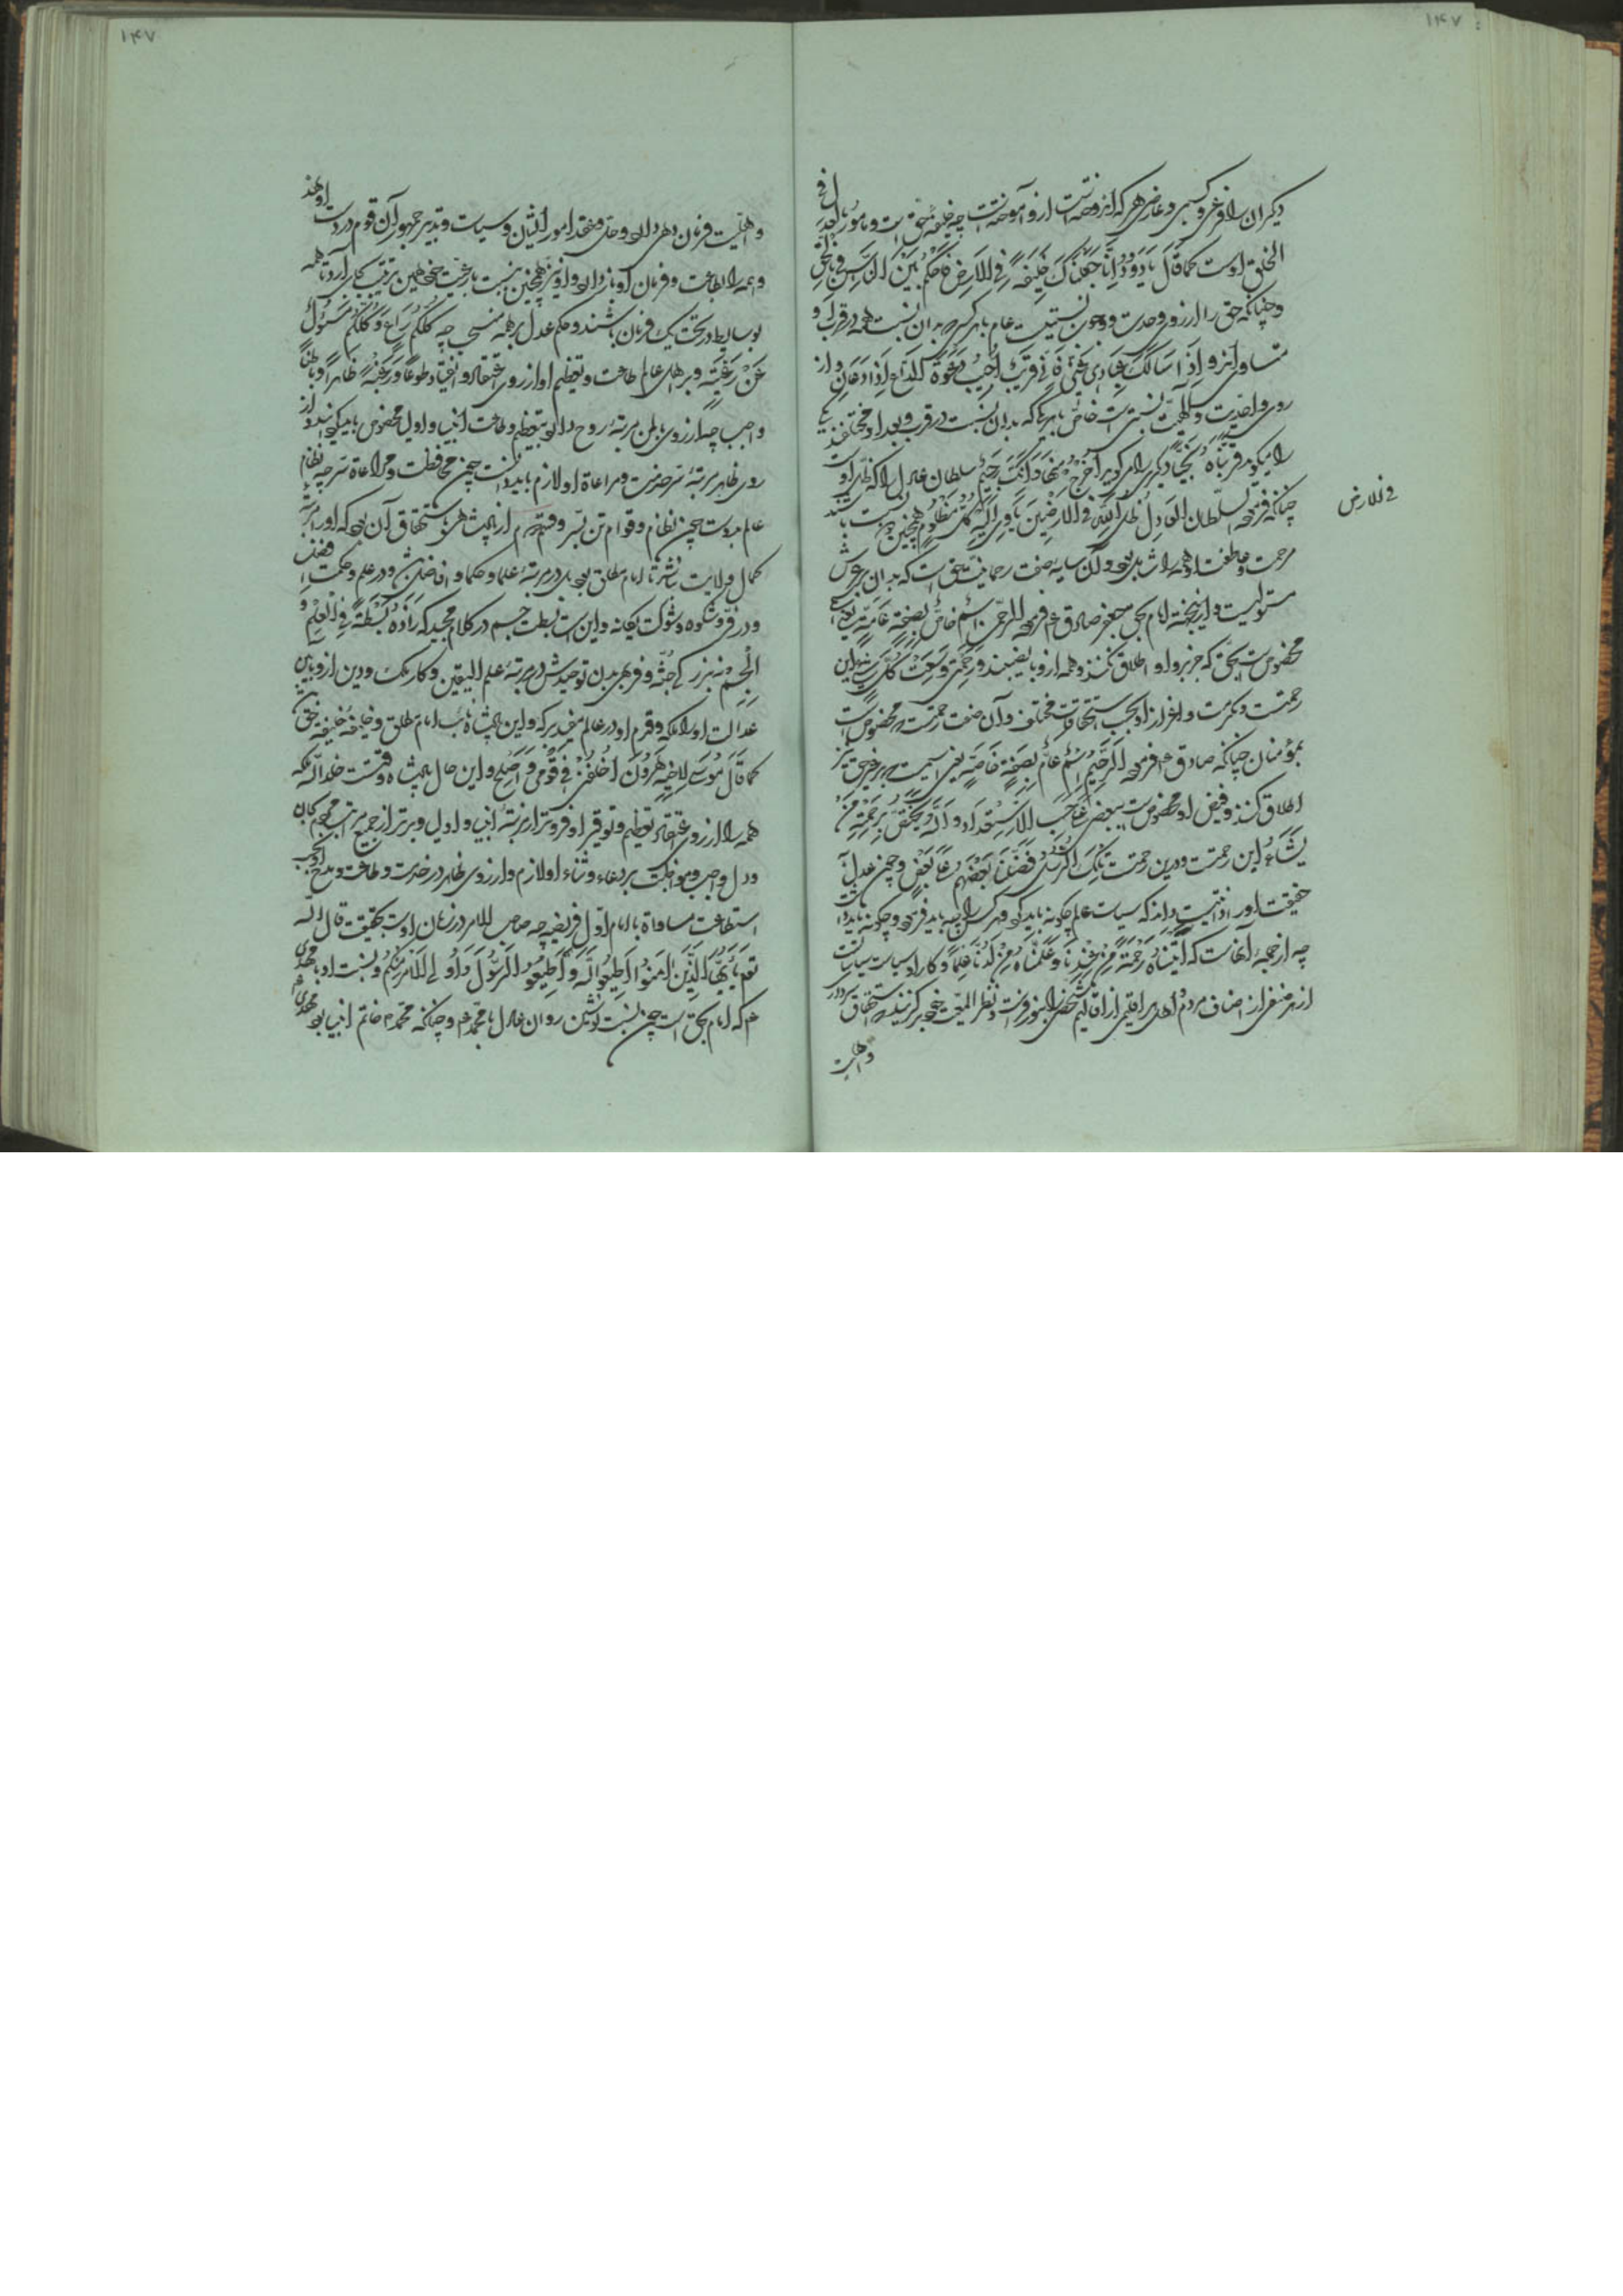 ۱۴۷
دیکران را فرعی و کسبی و عارضی هر که اندوخته است ازو آموخته است چه خلیفهٔ حق است و مأمور بالعدل فی
الخلق اوست کما قال یا داود انا جعلناک خلیفة فی الارض فاحکم بین الناس بالحق
و چنانکه حق را از روی وحدت و وجود نسبتیست عام با هر کس که بدان نسبت همه در قرب او
متساوی‌اند و اذا سألک عبادی عنی فانی قریب اجیب دعوة الداع اذا دعان و از
روی واحدیت و الهیت نسبتی است خاص با هر یک که بدان نسبت در قرب و بعد او مختلفند یکی
را میکوید قربناه نجیا دیکری را میکوید اخرج منها فانک رجیم سلطان عادل را که ظل اوست
چنانکه فرمود السلطان العادل ظل الله فی الارضین یأوی الیه کل مظلوم همچنین دو نسبت باشد
فی الارض
مرحمت و عاطفت او همه را شامل بود و آن سایهٔ صفت رحمانیت حق است که بدان بر عرش
مستولیست و ازینجا امام بحق جعفر صادق ع فرمود الرحمن اسم خاص بصفة عامة یعنی اسمی
مخصوص است بحق که جز برو اطلاق نکنند و همه ازو با نصیبند و رحمتی وسعت کل شیء این
رحمت و مکرمت و اعزاز او بحسب استحقاق مختلف و آن صفت رحمتست که مخصوص است
بمؤمنان چنانکه صادق ع فرمود الرحیم اسم عام بصفة خاصة یعنی اسمیست که بر غیر حق نیز
اطلاق کنند و فیض او مخصوص است ببعضی علی حسب الاستعداد و الله یختص برحمته من
یشاء این رحمت و درین رحمت تلک الرسل فضلنا بعضهم علی بعض و چون عدل
حقیقت او را ذاتیست داند که سیاست عالم چکونه باید کرد و هر کس را چه باید فرمود و چکونه باید داشت
چه از جمله آنهاست که آتیناه رحمة من عندنا و علمناه من لدنا علما و کار او سیاست سیاسات
از هر صنفی از اصناف مردم اهل اقلیمی از اقالیم شخصی را بنور فراست و نظر المعیت خود برکزیند که استحقاق سروری
و اهلیت
۱۴۷
و اهلیت فرمان دهی دارد و حل و عقد امور ایشان و سیاست و تدبیر جمهور آن قوم در دست او نهد
و همه را بطاعت و فرمان او باز دارد و او نیز همچنین نسبت با رعیت خود همین ترتیب بجای آرد تا همه
بوسایط در تحت یک فرمان باشند و حکم عدل بر همه منسحب چه کلکم راع و کلکم مسئول
عن رعیته و بر اهل عالم طاعت و تعظیم او از روی اعتقاد و انقیاد طوعا و رغبة ظاهرا و باطنا
واجب چه از روی باطن مرتبهٔ روح دارد بتعظیم و طاعت انبیا و اولیا مخصوص باید کردانید و از
روی ظاهر مرتبهٔ سر خدمت و مراعاة او لازم باید دانست چون محافظت و مراعاة سر چه نظام
عالم بدوست چون نظام و قوام تن بسر و قسم دوم از پادشاهی و استحقاق آن بود که او را مرتبهٔ
کمال ولایت نباشد تا امام مطلق بود بل در مرتبهٔ علما و حکما و افاضل باشد و در علم و حکمت
و در فر و شکوه و شوکت یکانه و این است بسطت جسم در کلام مجید که زاده بسطة فی العلم و
الجسم نه بزرکی جثه و فربهی بدن توحیدش در مرتبهٔ علم الیقین و کار ملک و دین ازو بآیین
عدالت او را ملکه و قدم او در عالم مفید برکه و این پادشاه نایب امام مطلق و خلیفهٔ خلیفهٔ حق باشد
کما قال موسی لاخیه هرون اخلفنی فی قومی و اصلح و این حال پادشاه وقتست خلد الله ملکه
همه را از روی اعتقاد تعظیم و توقیر او فروتر از رتبهٔ انبیا و اولیا و برتر از جمیع مراتب مردم بجان
و دل واجب و مواظبت بر دعا و ثناء او لازم و از روی ظاهر در خدمت و طاعت و مدح او بحسب
استطاعت مساواة با امام اول فریضه چه صاحب الامر در زمان اوست بحقیقت قال الله
تعالی یا ایها الذین آمنوا اطیعوا الله و اطیعوا الرسول و اولی الامر منکم و نسبت او با مهدی
ع م که امام بحق است چون نسبت نوشین روان عادل با محمد ع م و چنانکه محمد ع م خاتم انبیا بود مهدی